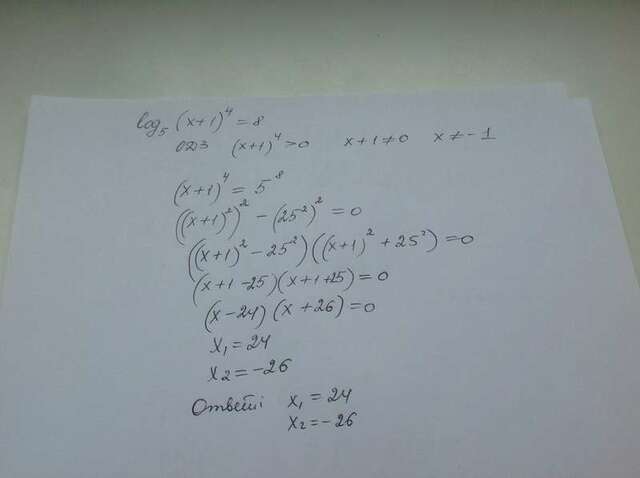 log₅ (x+1)⁴ = 8
ОДЗ (x+1)⁴ > 0 x+1 ≠ 0 x ≠ -1
(x+1)⁴ = 5⁸
((x+1)²)² - (25²)² = 0
((x+1)² - 25²)((x+1)² + 25²) = 0
(x+1-25)(x+1+25) = 0
(x-24)(x+26) = 0
x₁ = 24
x₂ = -26
Ответ: x₁ = 24
x₂ = -26